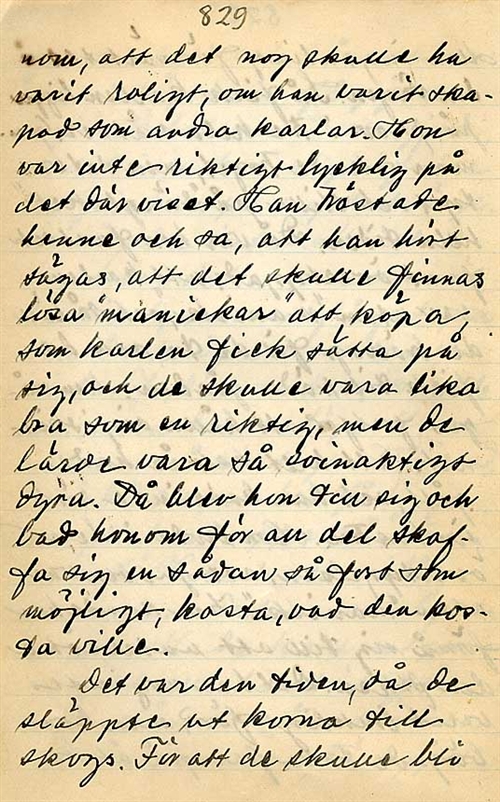 829
nom, att det nog skulle ha
varit roligt, om han varit ska-
pad som andra karlar. Hon
var inte riktigt lycklig på
det där viset. Han tröstade
henne och sa, att han hört
sägas, att det skulle finnas
lösa "manickar" att köpa,
som karlen fick sätta på
sig, och de skulle vara lika
bra som en riktig, men de
lärde vara så svinaktigt
dyra. Då blev hon till sig och
bad honom för all del skaf-
fa sig en sådan så fort som
möjligt, kosta, vad den kos-
ta ville.
Det var den tiden, då de
släppte ut korna till
skogs. För att de skulle bli